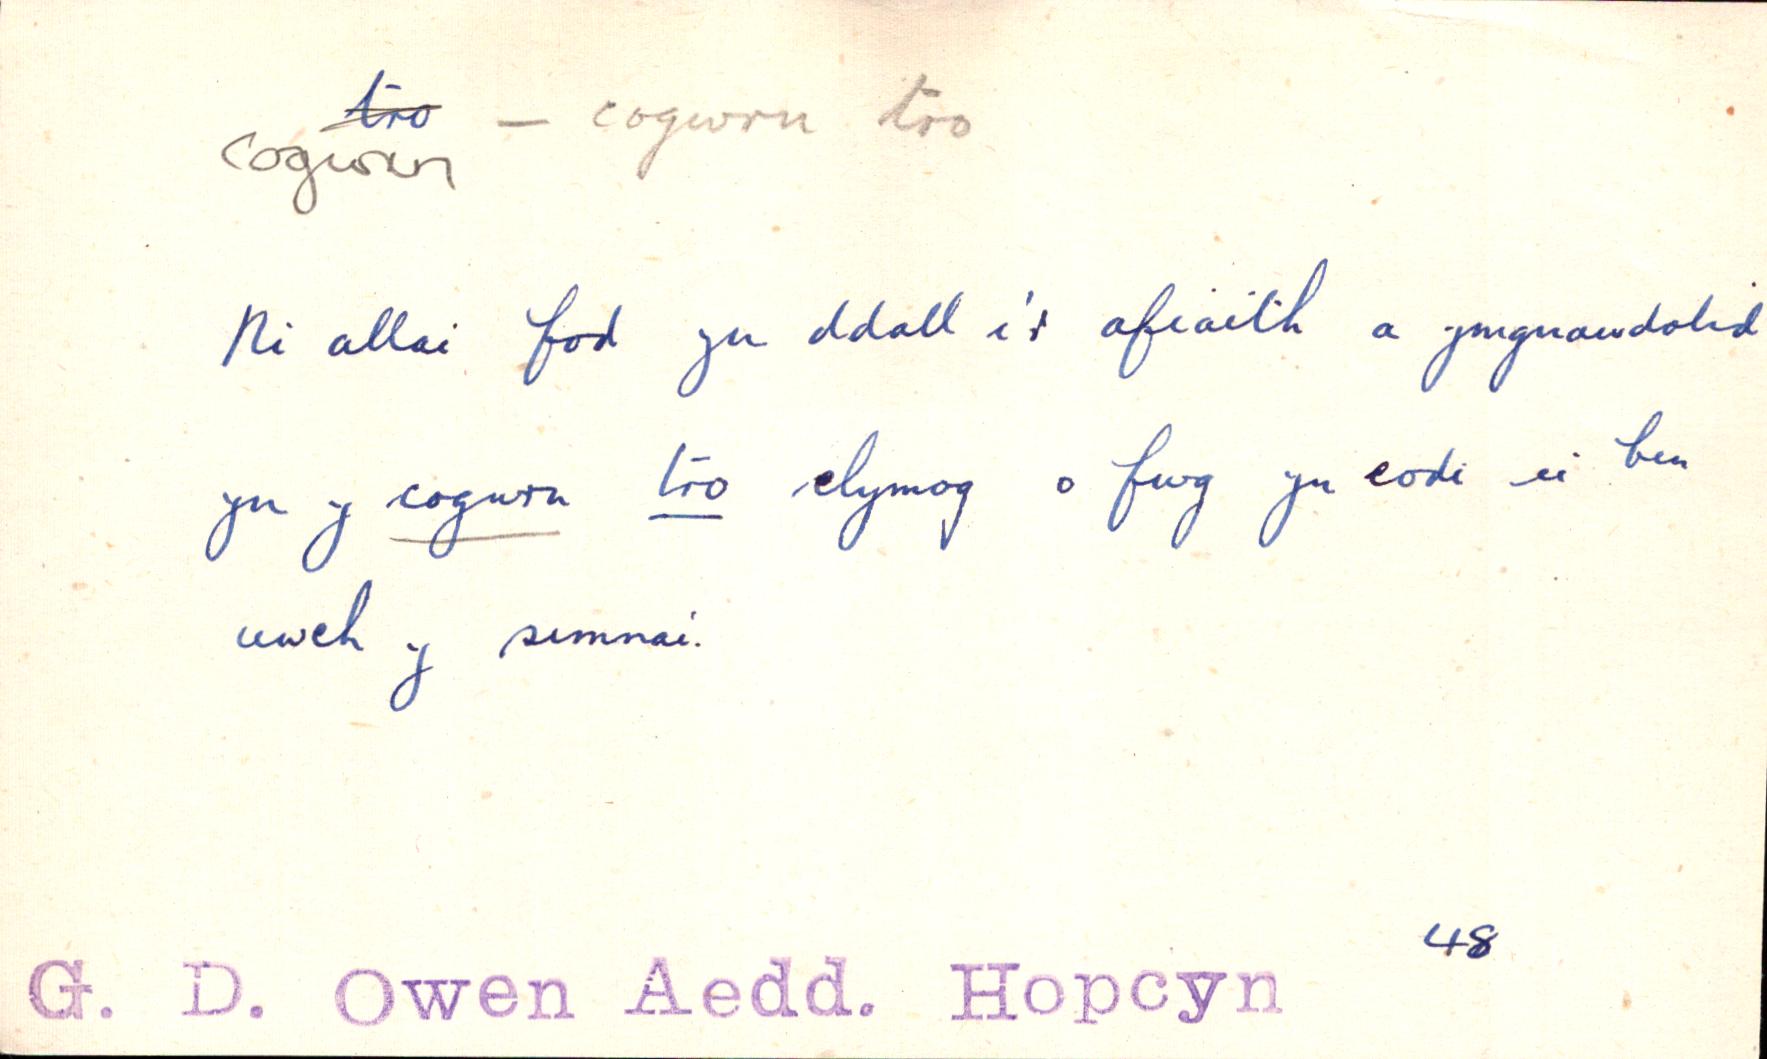 tro – cogwrn tro
cogwrn
Ni allai fod yn ddall i'r afiaith a ymgnawdolid
yn y cogwrn tro clymog o fwg yn codi ei ben
uwch y simnai.
48
G. D. Owen Aedd. Hopcyn